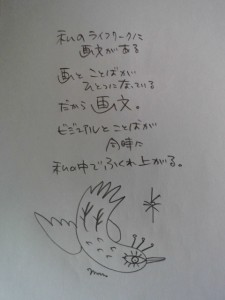 私のライフワークに
画文がある
画と ことばが
ひとつになっている
だから 画文。
ビジュアルとことばが
同時に
私の中でふくれ上がる。